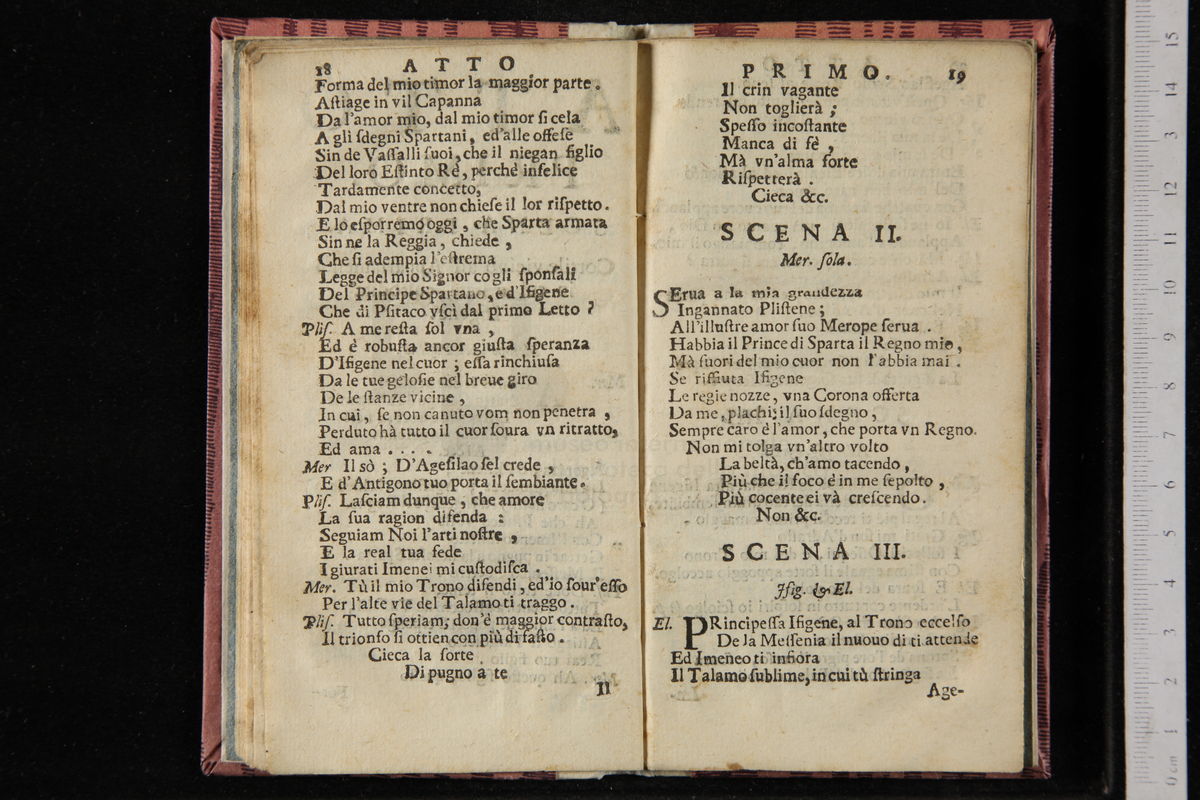 18 ATTO
Forma del mio timor la maggior parte.
Aſtiage in vil Capanna
Da l'amor mio, dal mio timor ſi cela
A gli ſdegni Spartani, ed'alle offeſe
Sin de Vaſſalli ſuoi, che il niegan figlio
Del loro Eſtinto Rè, perchè infelice
Tardamente concetto,
Dal mio ventre non chieſe il lor riſpetto.
E lo eſporremo oggi, che Sparta armata
Sin ne la Reggia, chiede,
Che ſi adempia l'eſtrema
Legge del mio Signor co gli ſponſali
Del Principe Spartano, e d'Iſigene
Che di Pſitaco vſcì dal primo Letto?
Pliſ. A me reſta ſol vna,
Ed è robuſta ancor giuſta ſperanza
D'Iſigene nel cuor; eſſa rinchiuſa
Da le tue geloſie nel breue giro
De le ſtanze vicine,
In cui, ſe non canuto vom non penetra,
Perduto hà tutto il cuor ſoura vn ritratto,
Ed ama . . . .
Mer Il sò; D'Ageſilao ſel crede,
E d'Antigono tuo porta il ſembiante.
Pliſ. Laſciam dunque, che amore
La ſua ragion difenda:
Seguiam Noi l'arti noſtre,
E la real tua fede
I giurati Imenei mi cuſtodiſca.
Mer. Tù il mio Trono difendi, ed'io ſour'eſſo
Per l'alte vie del Talamo ti traggo.
Pliſ. Tutto ſperiam; don'è maggior contraſto,
Il trionfo ſi ottien con più di faſto.
Cieca la ſorte
Di pugno a te
Il
PRIMO. 19
Il crin vagante
Non toglierà;
Speſſo incoſtante
Manca di fè,
Mà vn'alma forte
Riſpetterà.
Cieca &c.
SCENA II.
Mer. ſola.
SErua a la mia grandezza
Ingannato Pliſtene;
All'illuſtre amor ſuo Merope ſerua.
Habbia il Prince di Sparta il Regno mio,
Mà fuori del mio cuor non l'abbia mai.
Se rifiuta Iſigene
Le regie nozze, vna Corona offerta
Da me, plachi; il ſuo ſdegno,
Sempre caro è l'amor, che porta vn Regno.
Non mi tolga vn'altro volto
La beltà, ch'amo tacendo,
Più che il foco è in me ſepolto,
Più cocente ei và creſcendo.
Non &c.
SCENA III.
Iſig. & El.
El. PRincipeſſa Iſigene, al Trono eccelſo
De la Meſſenia il nuouo dì ti attende
Ed Imeneo ti infiora
Il Talamo ſublime, in cui tù ſtringa
Age-